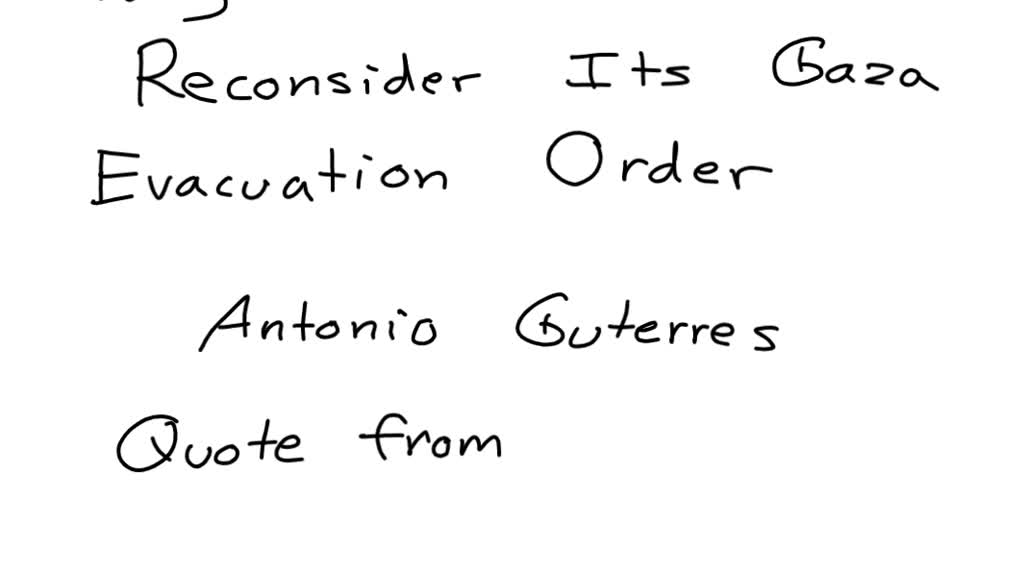 Reconsider Its Gaza
Evacuation Order
Antonio Guterres
Quote from